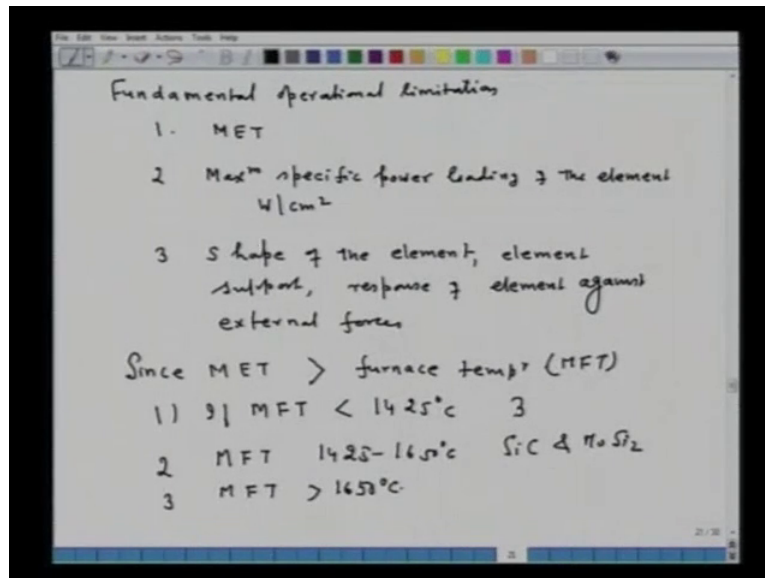 File Edit View Insert Actions Tools Help
Fundamental operational limitation
1. MET
2 Maxm specific power loading of the element
W/cm2
3 Shape of the element, element
support, response of element against
external forces
Since MET > furnace tempr (MFT)
1) If MFT < 1425°C 3
2 MFT 1425-1650°C SiC & MoSi2
3 MFT > 1650°C.
21